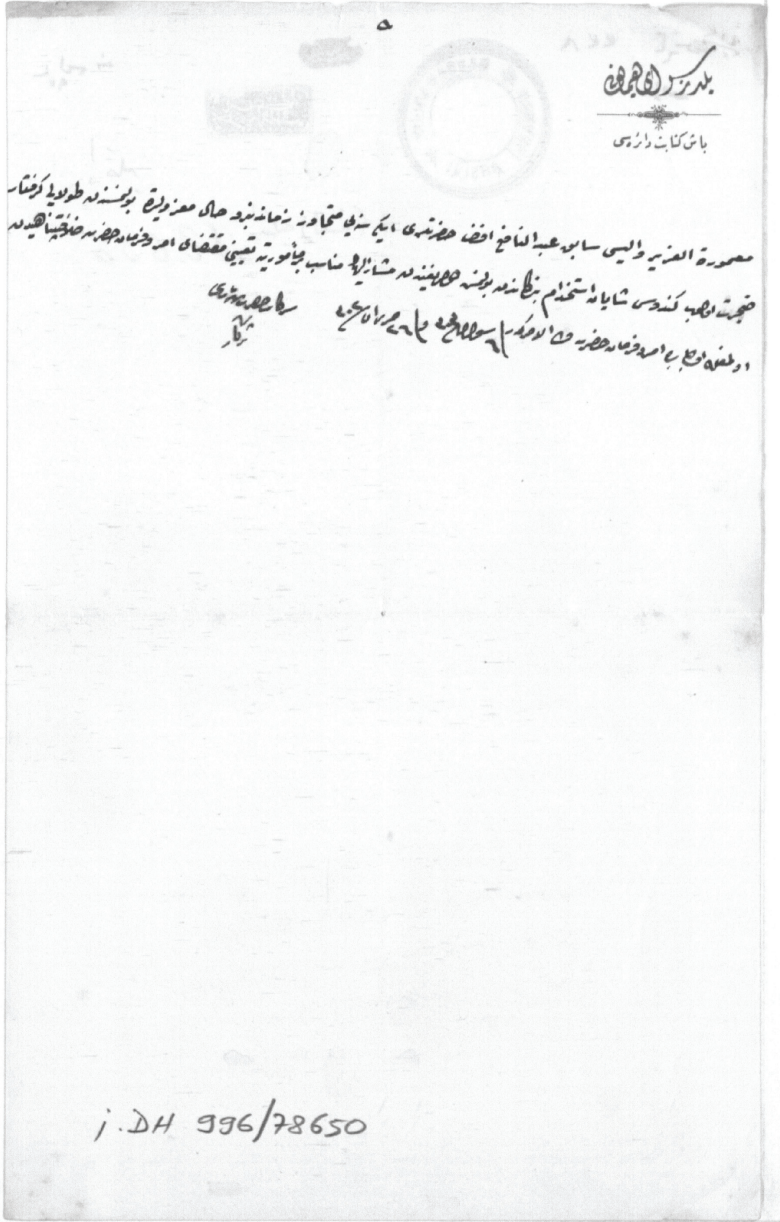 ه
يلديز سراى همايونى
باش كتابت دائره سى
معمورة العزيز واليسى سابق عبد النافع افندى حضرتلرى ايكى سنه يى متجاوز زماندنبرو حال معزوليتده بولنمسندن طولايى گرفتار
ضجرت اولوب كندوسى شايان استخدام بندكاندن بولنمش اولديغندن مشار اليهك مناسب بر مأموريته تعيينى مقتضاى امر و فرمان حضرت خلافتپناهيدن
اولمغله اولبابده امر و فرمان حضرت ولى الامركدر فى ٦ شوال سنه و فى ٢٦ حزيران سنه
سر كاتب حضرت شهريارى
ثريا
İ.DH 996/78650